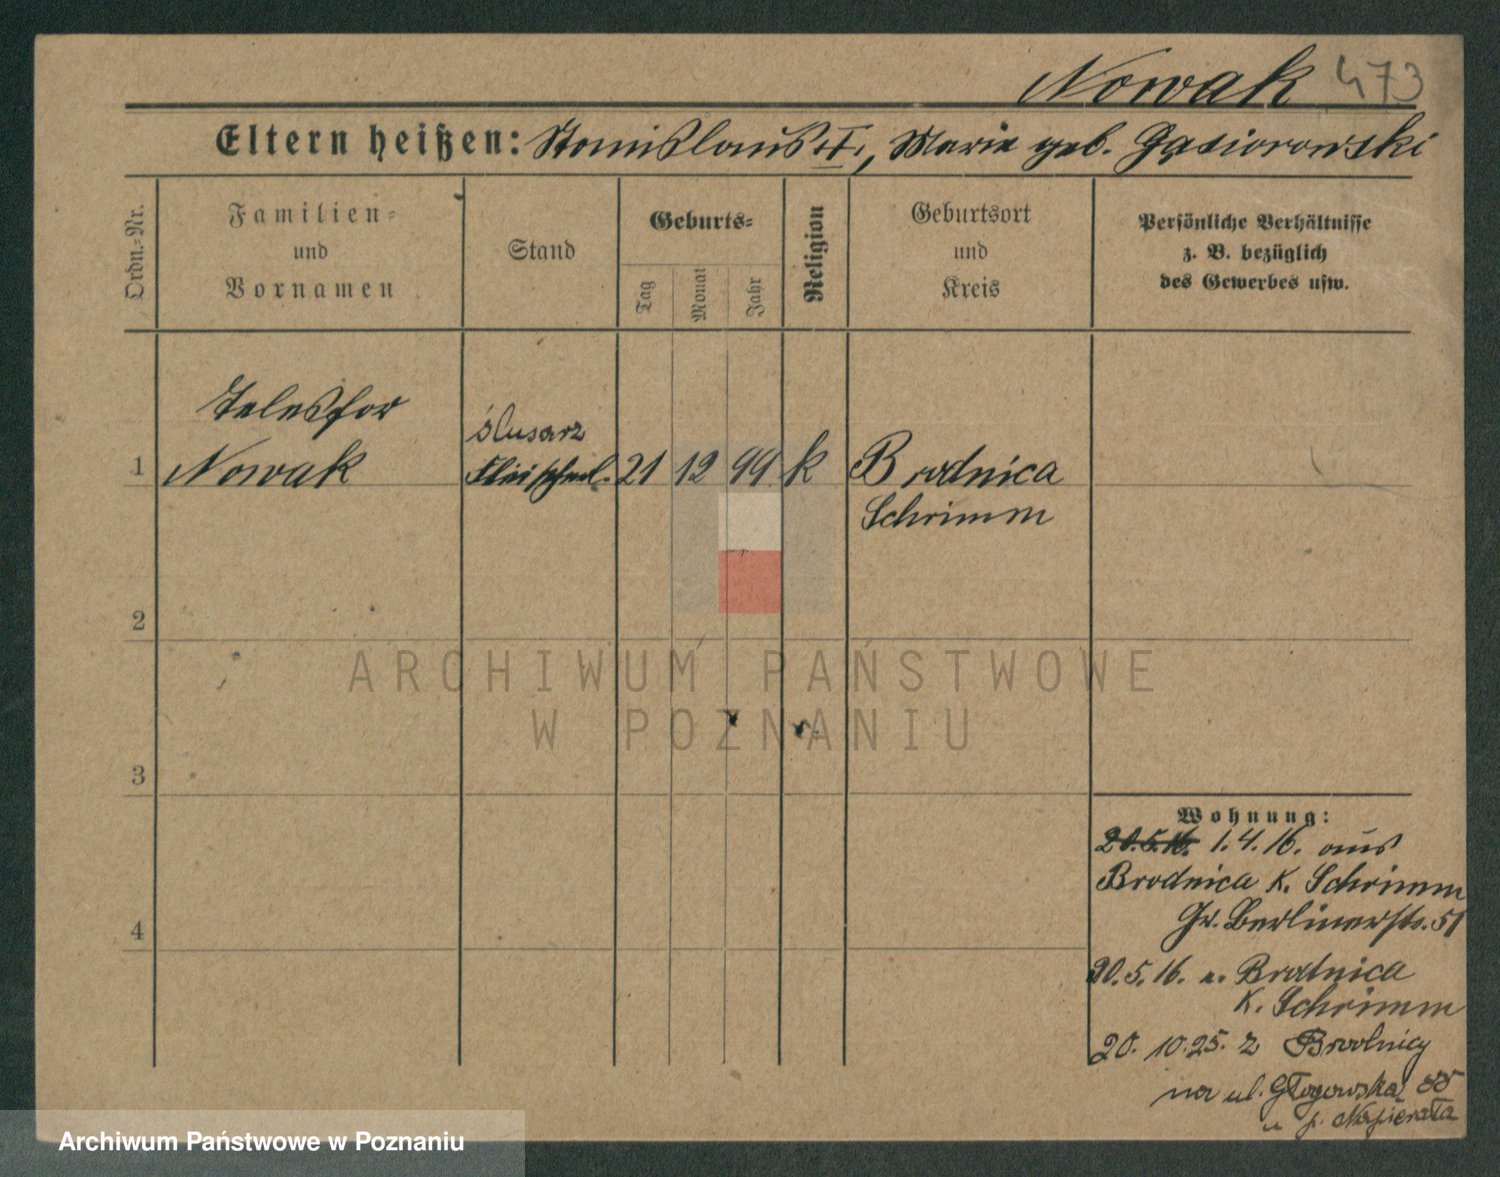 Nowak 473
Eltern heißen: Stanislaus II, Marie geb. Gąsiorowski
Ordn.-Nr.
Familien-
und
Vornamen
Stand
Geburts-
Tag
Monat
Jahr
Religion
Geburtsort
und
Kreis
Persönliche Verhältnisse
z. B. bezüglich
des Gewerbes usw.
Telesfor
ślusarz
1 Nowak Fleischerl. 21 12 99 k Brodnica
Schrimm
2
ARCHIWUM PAŃSTWOWE
W POZNANIU
3
Wohnung:
20.5.16. 1.4.16. aus
Brodnica K. Schrimm
Gr. Berlinerstr. 51
4
20.5.16. n. Brodnica
K. Schrimm
20. 10.25. z Brodnicy
na ul. Głogowska 88
u p. Napierała
Archiwum Państwowe w Poznaniu